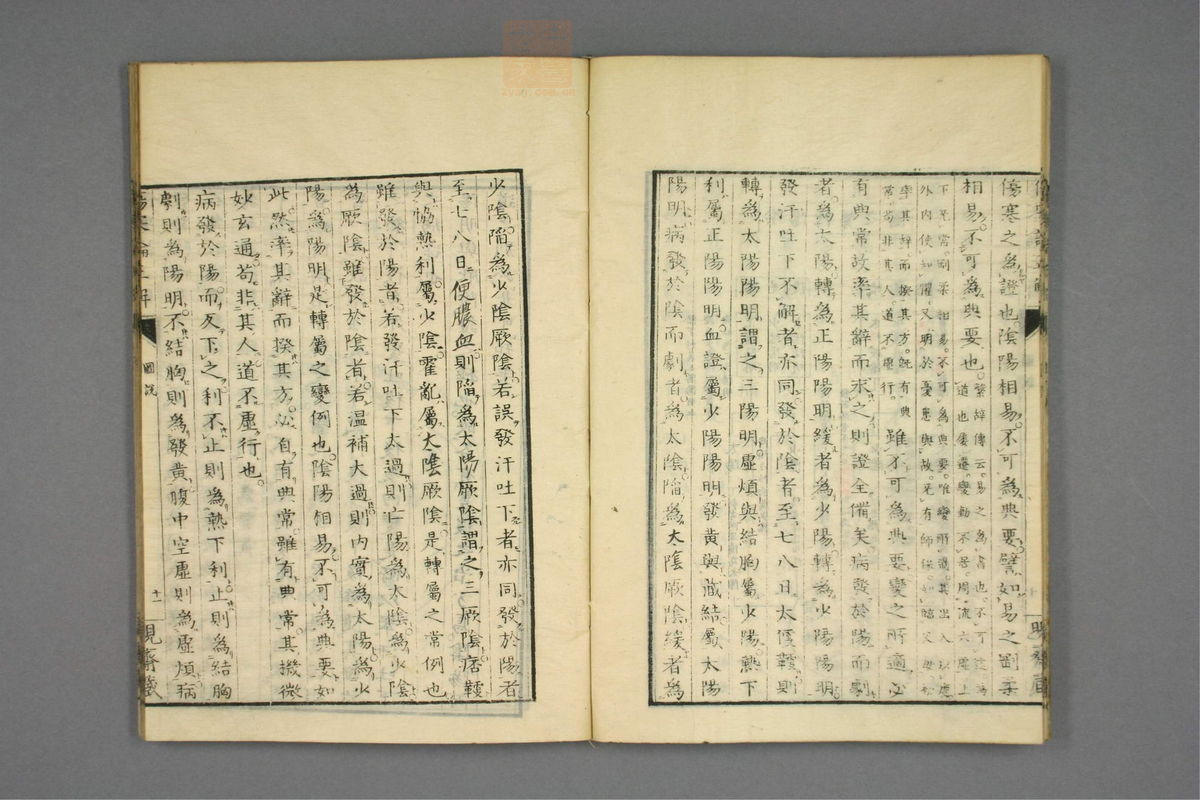 傷寒之為證也陰陽相易不可為典要譬如易之剛柔
相易不可為典要也
繫辭傳云易之為書也不可遠為
道也屢遷變動不居周流六虛上
下无常剛柔相易不可為典要唯變所適其出入以度
外內使知懼又明於憂患與故无有師保如臨父母初
率其辭而揆其方既有典
常苟非其人道不虛行
雖不可為典要變之所適必
有典常故率其辭而求之則證全備矣病發於陽而劇
者為太陽轉為正陽陽明緩者為少陽轉為少陽陽明
發汗吐下不解者亦同發於陰者至七八日大便鞕則
轉為太陽陽明謂之三陽明虛煩與結胸屬少陽熱下
利屬正陽陽明血證屬少陽陽明發黃與藏結屬太陽
陽明病發於陰而劇者為太陰陷為大陰厥陰緩者為
少陰陷為少陰厥陰若誤發汗吐下者亦同發於陽者
至七八日便膿血則陷為太陽厥陰謂之三厥陰痞鞕
與恊熱利屬少陰霍亂屬大陰厥陰是轉屬之常例也
雖發於陽者若發汗吐下太過則亡陽為太陰為少陰
為厥陰雖發於陰者若溫補大過則內實為太陽為少
陽為陽明是轉屬之變例也陰陽相易不可為典要如
此然率其辭而揆其方必自有典常雖有典常其機微
妙玄通苟非其人道不虛行也
病發於陽而反下之利不止則為熱下利止則為結胸
劇則為陽明不結胸則為發黃腹中空虛則為虛煩病
圖說
十一